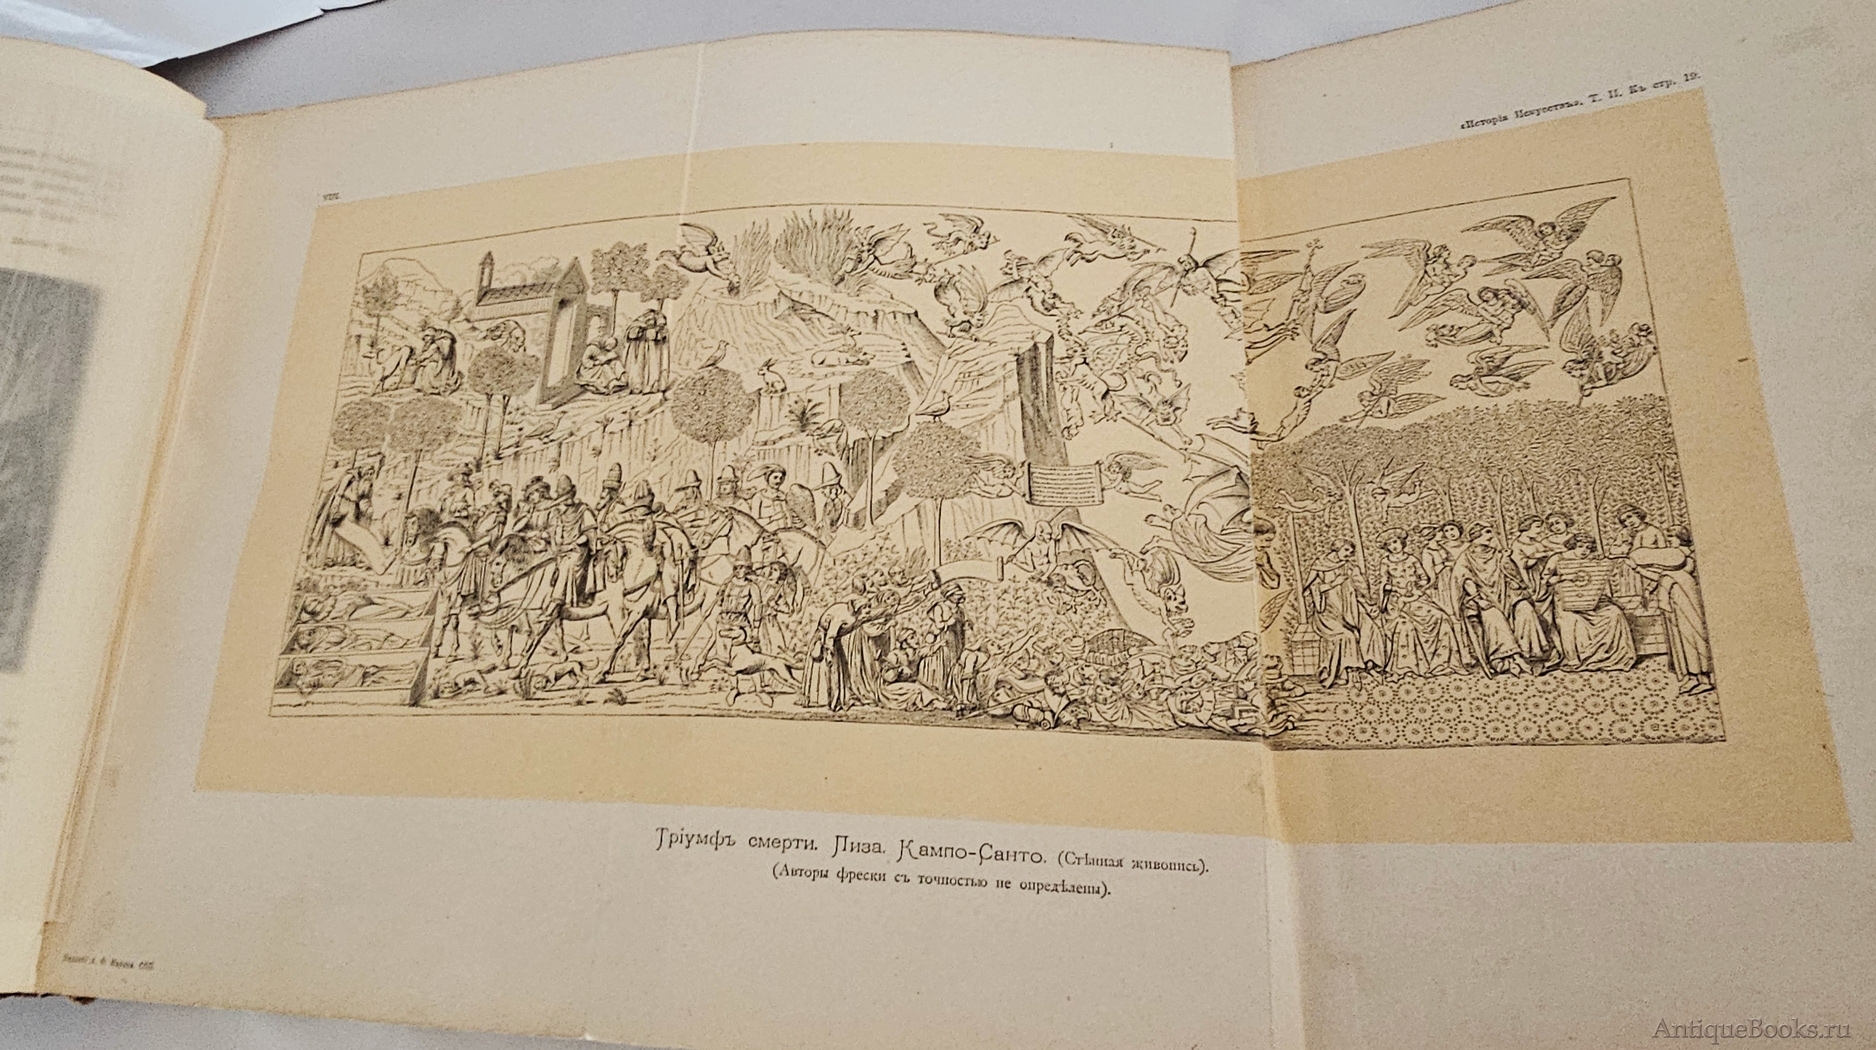 «Исторія Искусствъ», Т. II. Къ стр. 19.
VIII.
Тріумфъ смерти. Пиза. Кампо-Санто. (Стѣнная живопись).
(Авторы фрески съ точностью не опредѣлены).
AntiqueBooks.ru